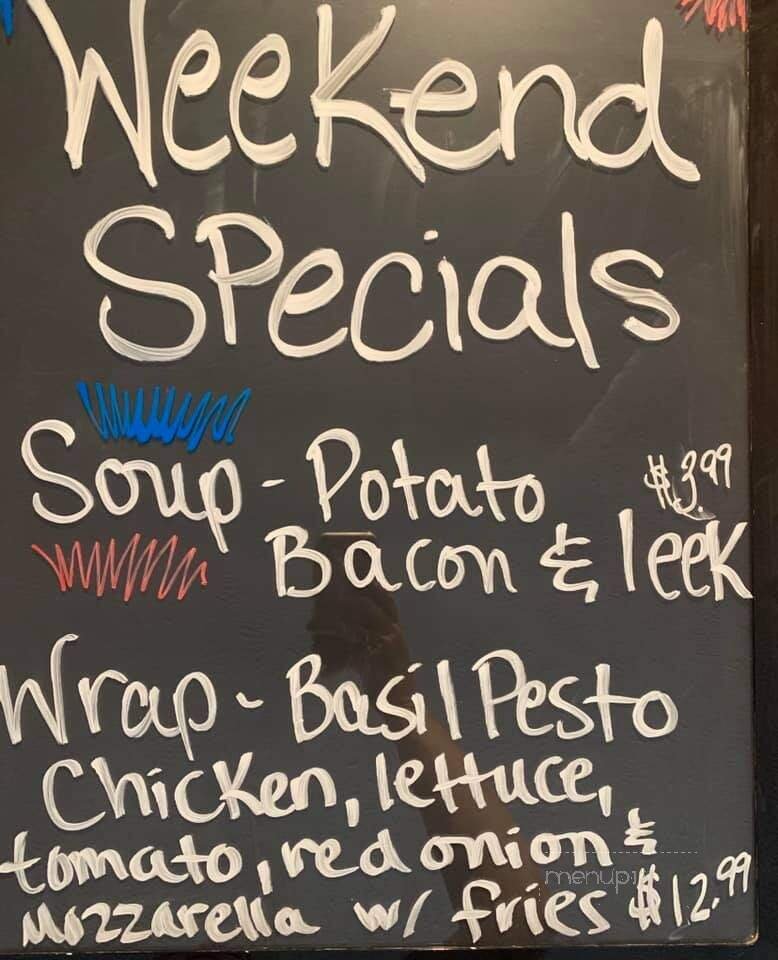 Weekend
Specials
Soup - Potato $3.99
Bacon & leek
Wrap - Basil Pesto
Chicken, lettuce,
tomato, red onion &
Mozzarella w/ fries $12.99
menupix